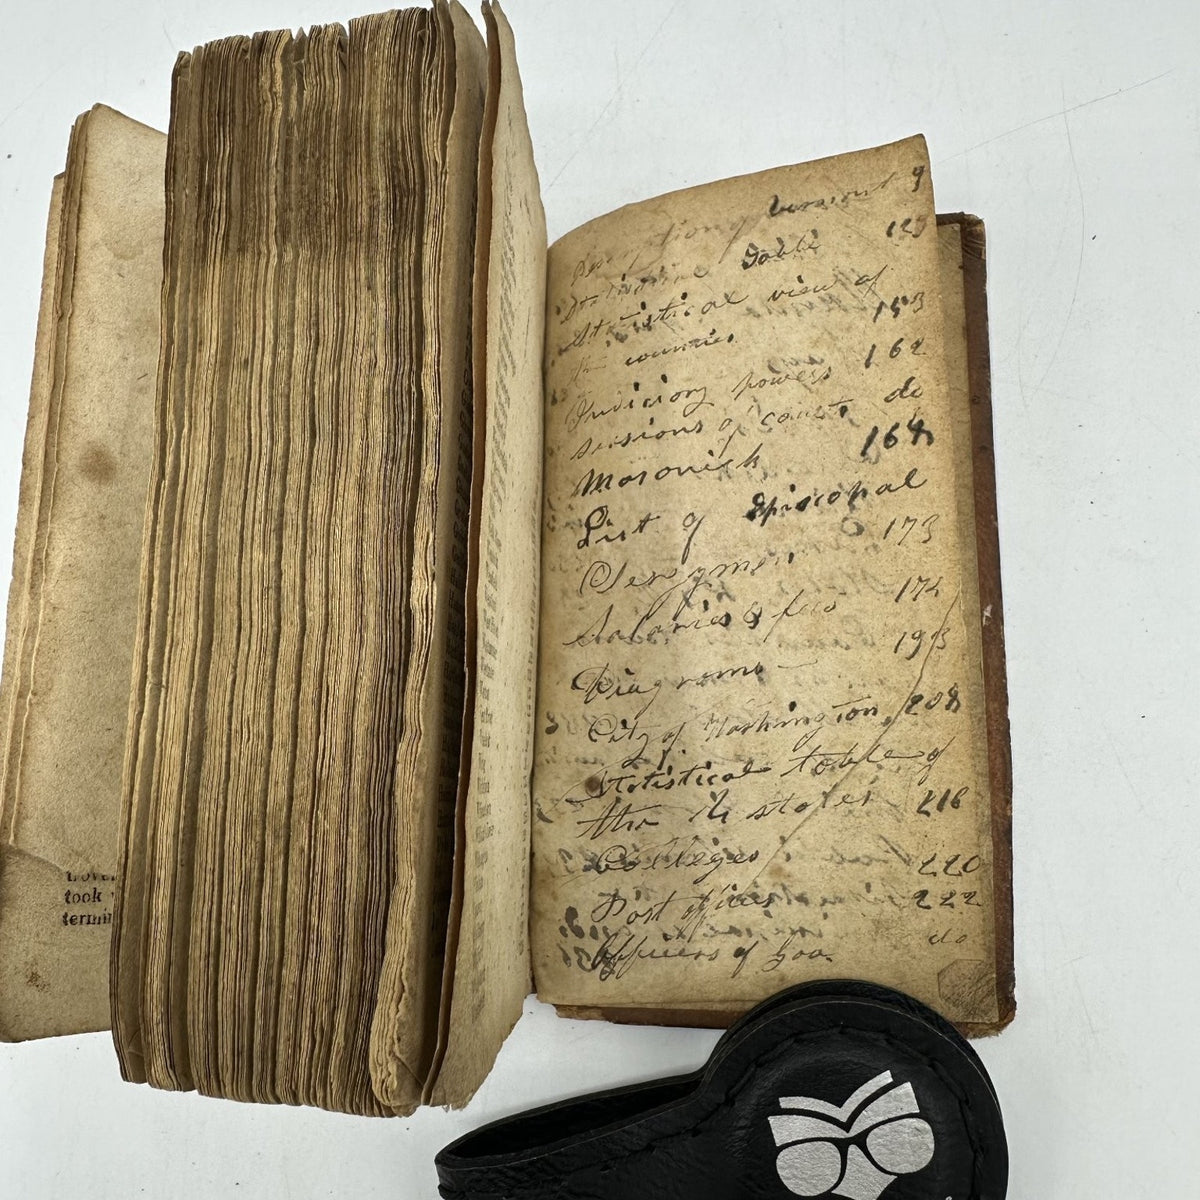 took
termin
Vermont 9
Table 123
Statistical view of
counties 153
Judiciary powers 162
sessions of court do
Masonick 164
List of Episcopal
Clergymen 173
Salaries & fees 174
Diagrams 193
City of Washington, 208
Statistical table of
the U states 218
Colleges 220
Post offices 222
Officers of Gov. do